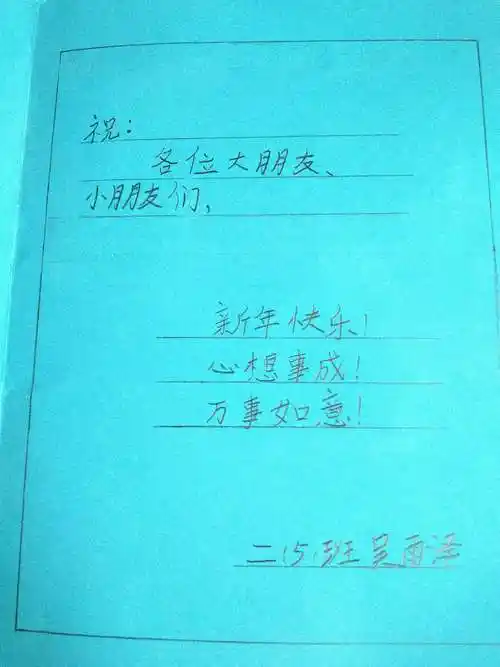 祝:
各位大朋友、
小朋友们,
新年快乐!
心想事成!
万事如意!
二(5)班吴雨泽